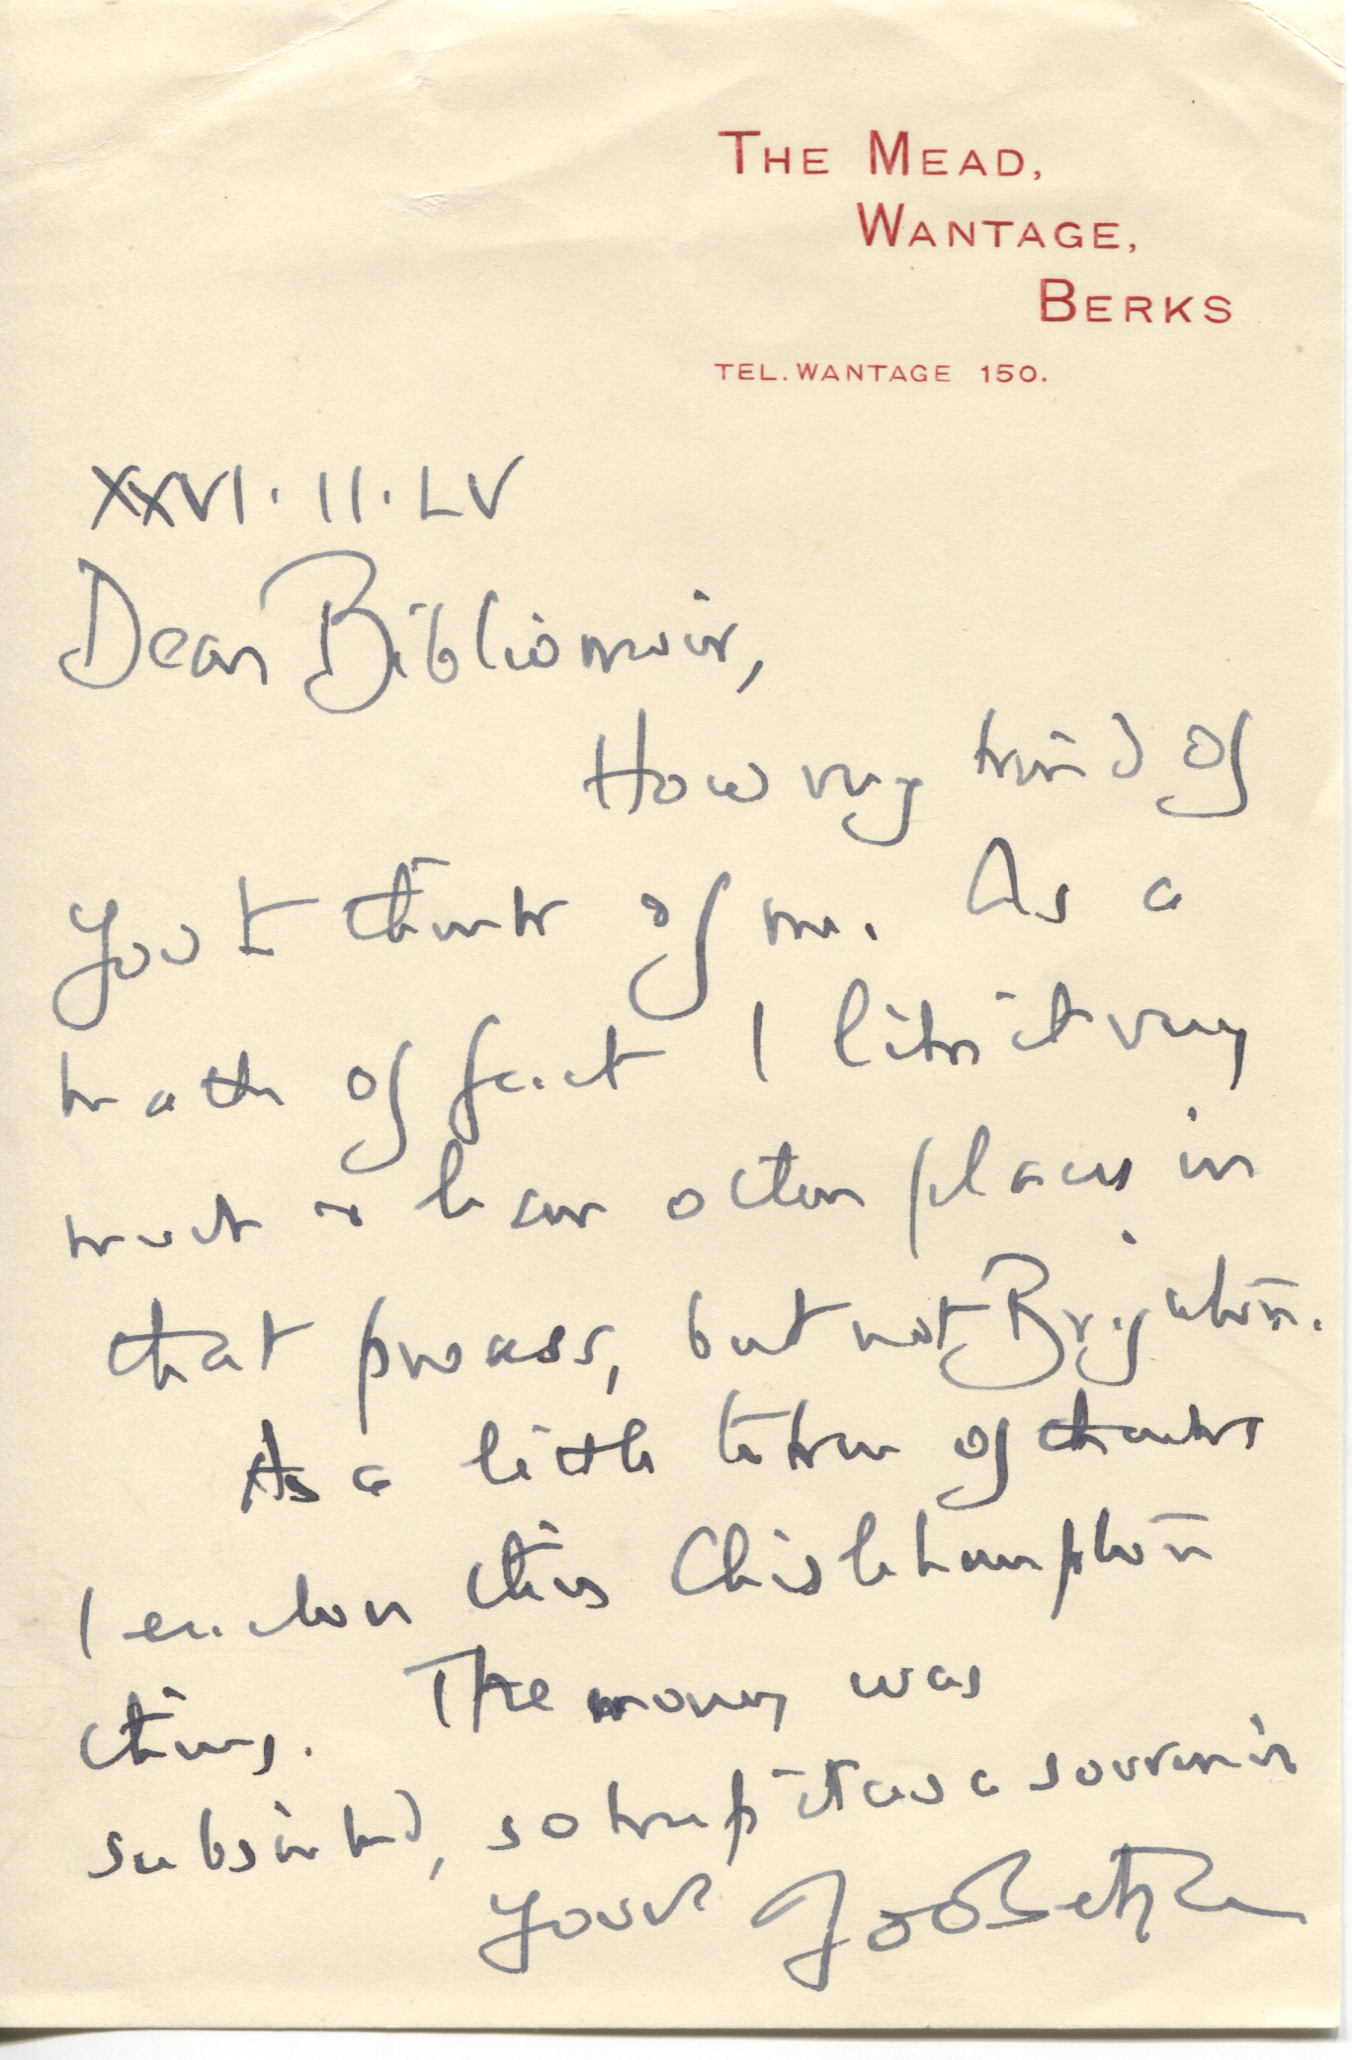 THE MEAD,
WANTAGE,
BERKS
TEL. WANTAGE 150.
XXVI. II. LV
Dear Bibliomuir,
How very kind of
you to think of me. As a
matter of fact I like it very
much & have often places in
that process, but not Brighton.
As a little token of thanks
I enclose this Chislehampton
thing. The money was
subscribed, so keep it as a souvenir
Yours John Betjeman